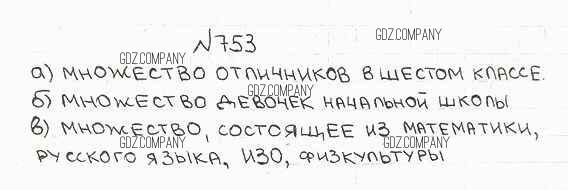 №753
GDZ.COMPANY
GDZ.COMPANY
а) множество отличников в шестом классе.
GDZ.COMPANY
б) множество девочек начальной школы
в) множество, состоящее из математики,
GDZ.COMPANY
GDZ.COMPANY
русского языка, ИЗО, физкультуры